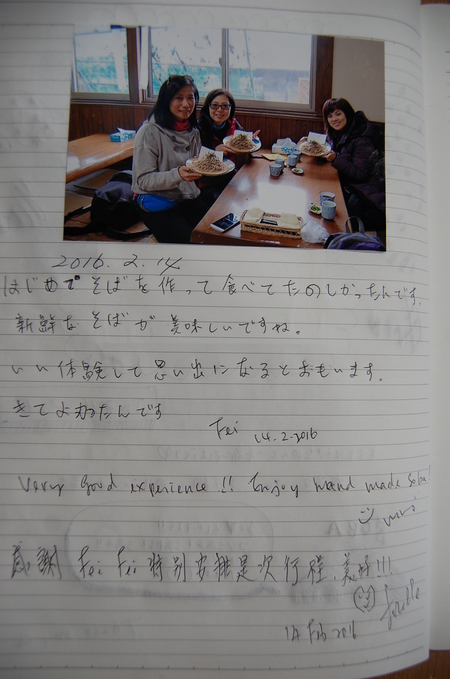 2016. 2. 14
はじめてそばを作って食べてたのしかったんです.
新鮮なそばが美味しいですね。
いい体験して思い出になるとおもいます.
きてよかたんです
Fei 14.2.2016
Very Good experience!! Enjoy hand made Soba!
感謝 Fei Fei 特別安排是次行程, 美好!!!
14 Feb 2016